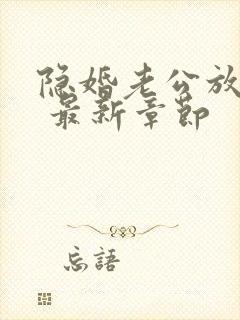 隐婚老公放
最新章节
忘語